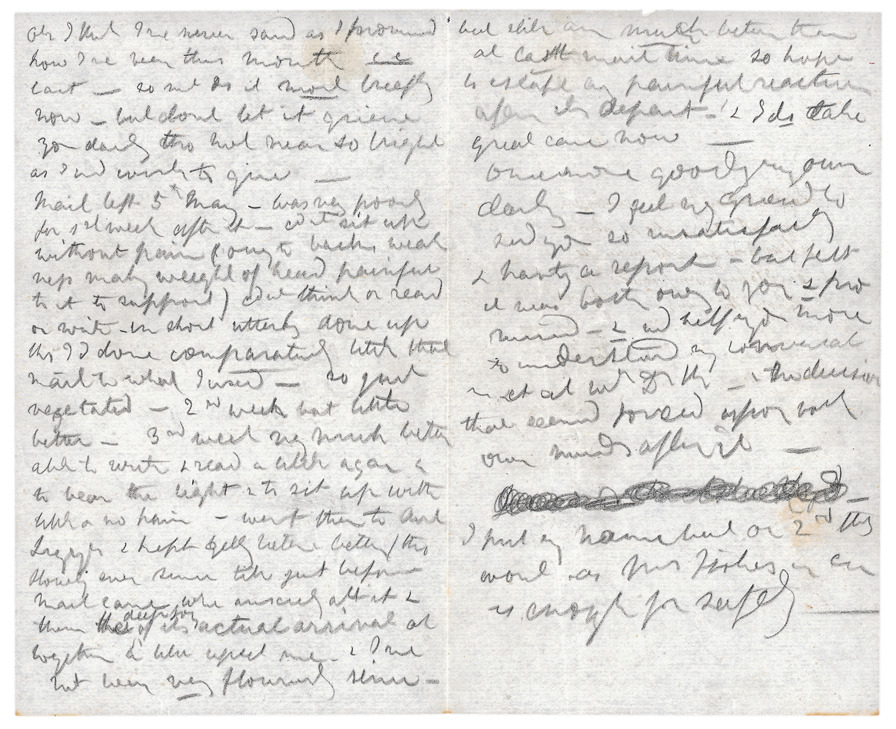 Oh I that I've never said as I promised
how I've been this month
last — so must do it most briefly
now — but dont let it grieve
you dearly tho not near so bright
as I wd wish to give —
Mail left 5th May — was very poorly
for 1st week after it — cdnt sit up
without pain (owing to backs weak
ness making weight of head painful
to it to support) cdnt think or read
or write - in short utterly done up
tho I'd done comparatively little that
mail to what I used — so just
vegetated — 2nd week but little
better — 3rd week very much better
able to write & read a little again &
to bear the light & to sit up with
little or no pain — went then to Aunt
& kept getting better & better (tho
slowly) ever since till just before
mail came, when anxiety abt it &
then the joy of its actual arrival al
together a little upset me - & I've
not been very flourishing since —
but still am much better than
at last mail time so hope
to escape any painful reaction
after its depart - & I do take
great care now —
Once more goodbye my own
darling — I feel very grieved to
send you so unsatisfactory
& hasty a report — but felt
it was both owing to you & pro
mised — & wd help you more
to understand my
at wt Dr — the decision
that seemed forced upon both
our minds after it —
I put my name but on 2nd this
world as
is enough for safety